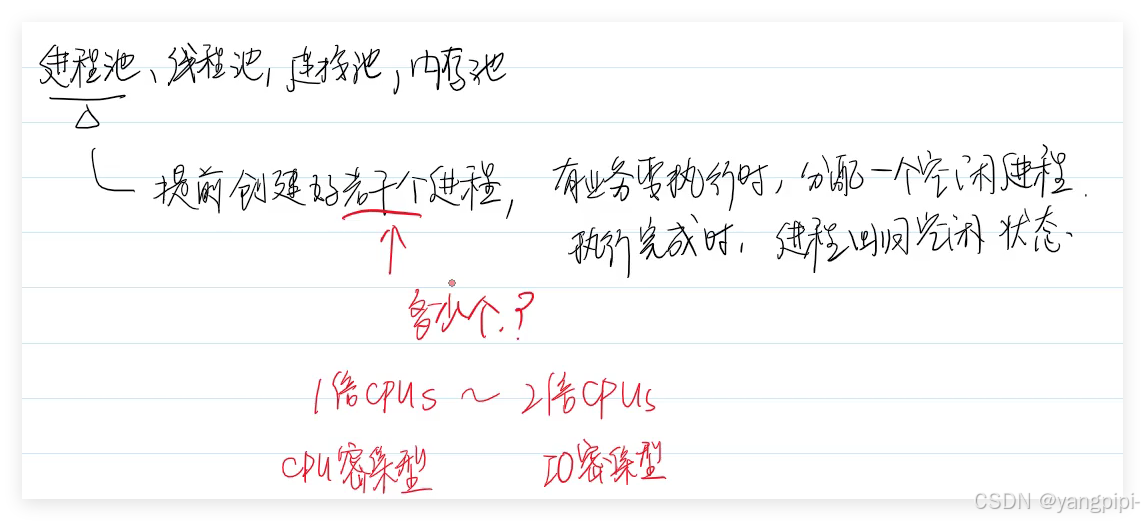 进程池、线程池,连接池,内存池
提前创建好若干个进程, 有业务要执行时,分配一个空闲进程.
执行完成时,进程回归空闲状态.
多少个.?
1倍CPUs ~ 2倍CPUs
CPU密集型 IO密集型
CSDN @yangpipi-